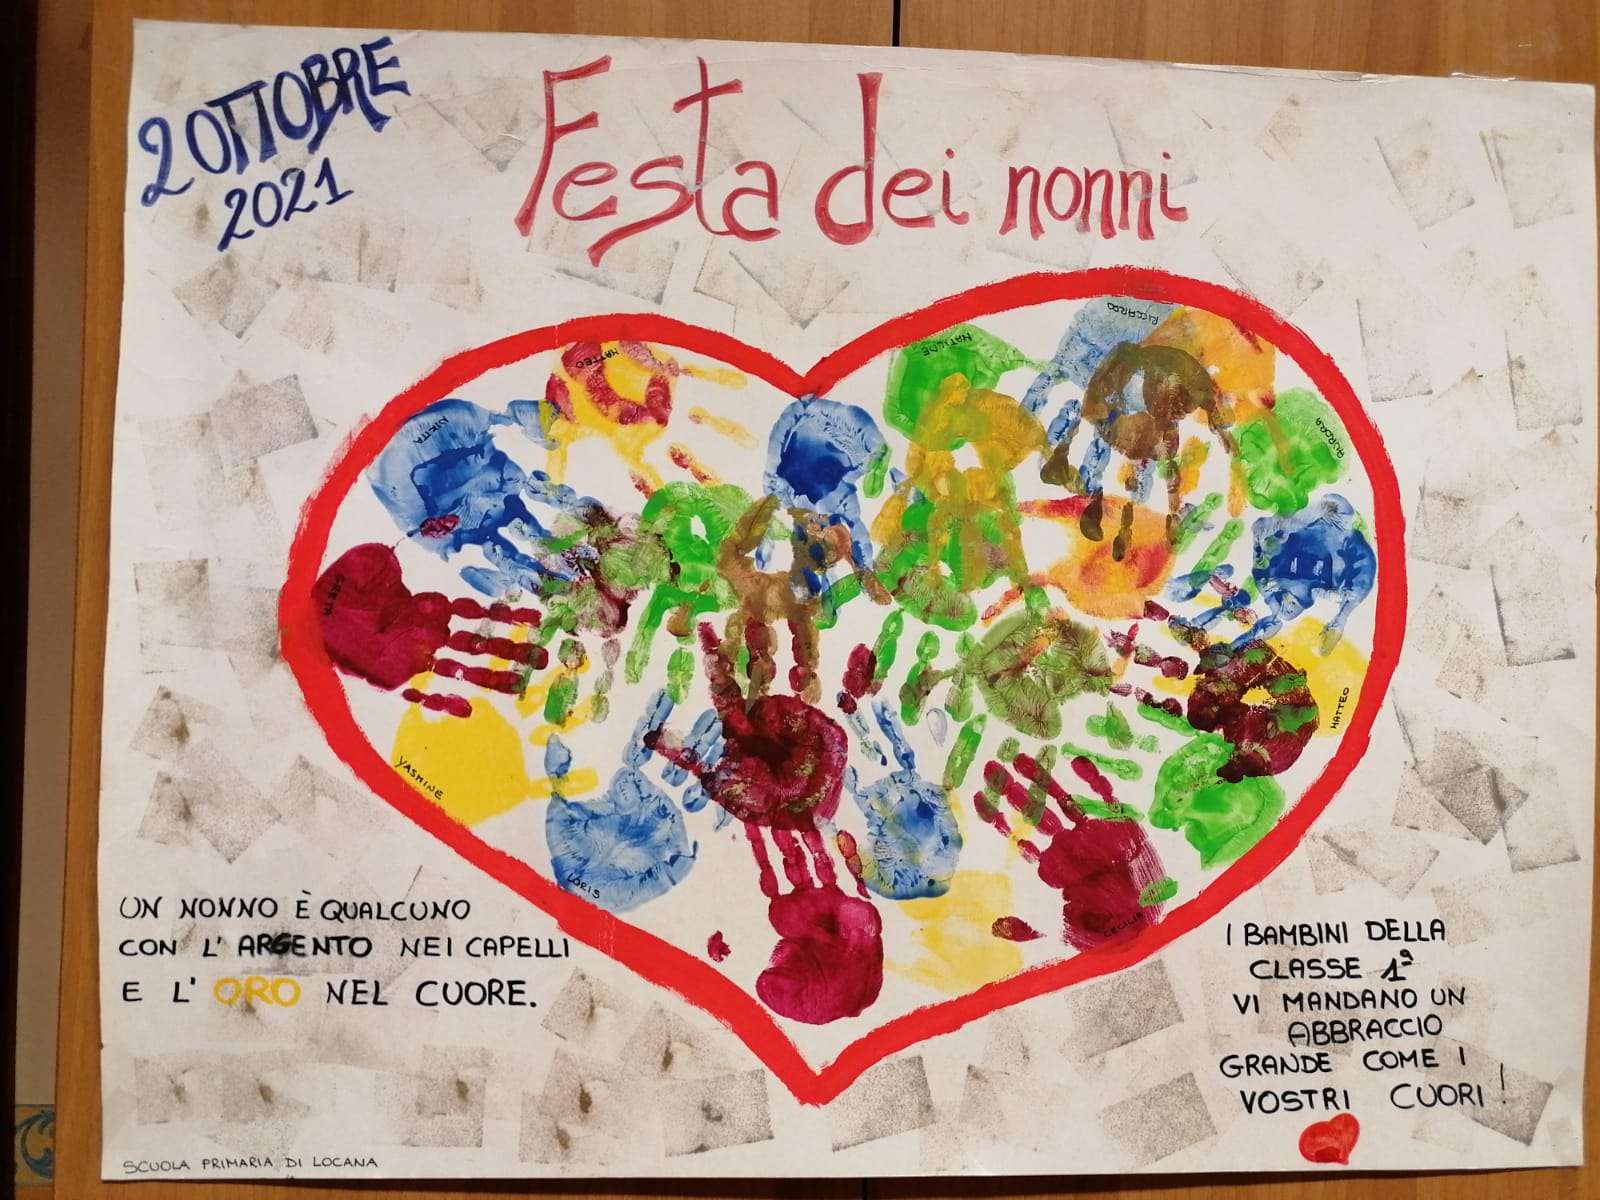 2 OTTOBRE
2021
Festa dei nonni
MATTEO
MATILDE
RICCARDO
AURORA
GRETA
MATTEO
YASMINE
LORIS
CECILIA
UN NONNO È QUALCUNO
CON L'ARGENTO NEI CAPELLI
E L'ORO NEL CUORE.
I BAMBINI DELLA
CLASSE 1ª
VI MANDANO UN
ABBRACCIO
GRANDE COME I
VOSTRI CUORI!
SCUOLA PRIMARIA DI LOCANA